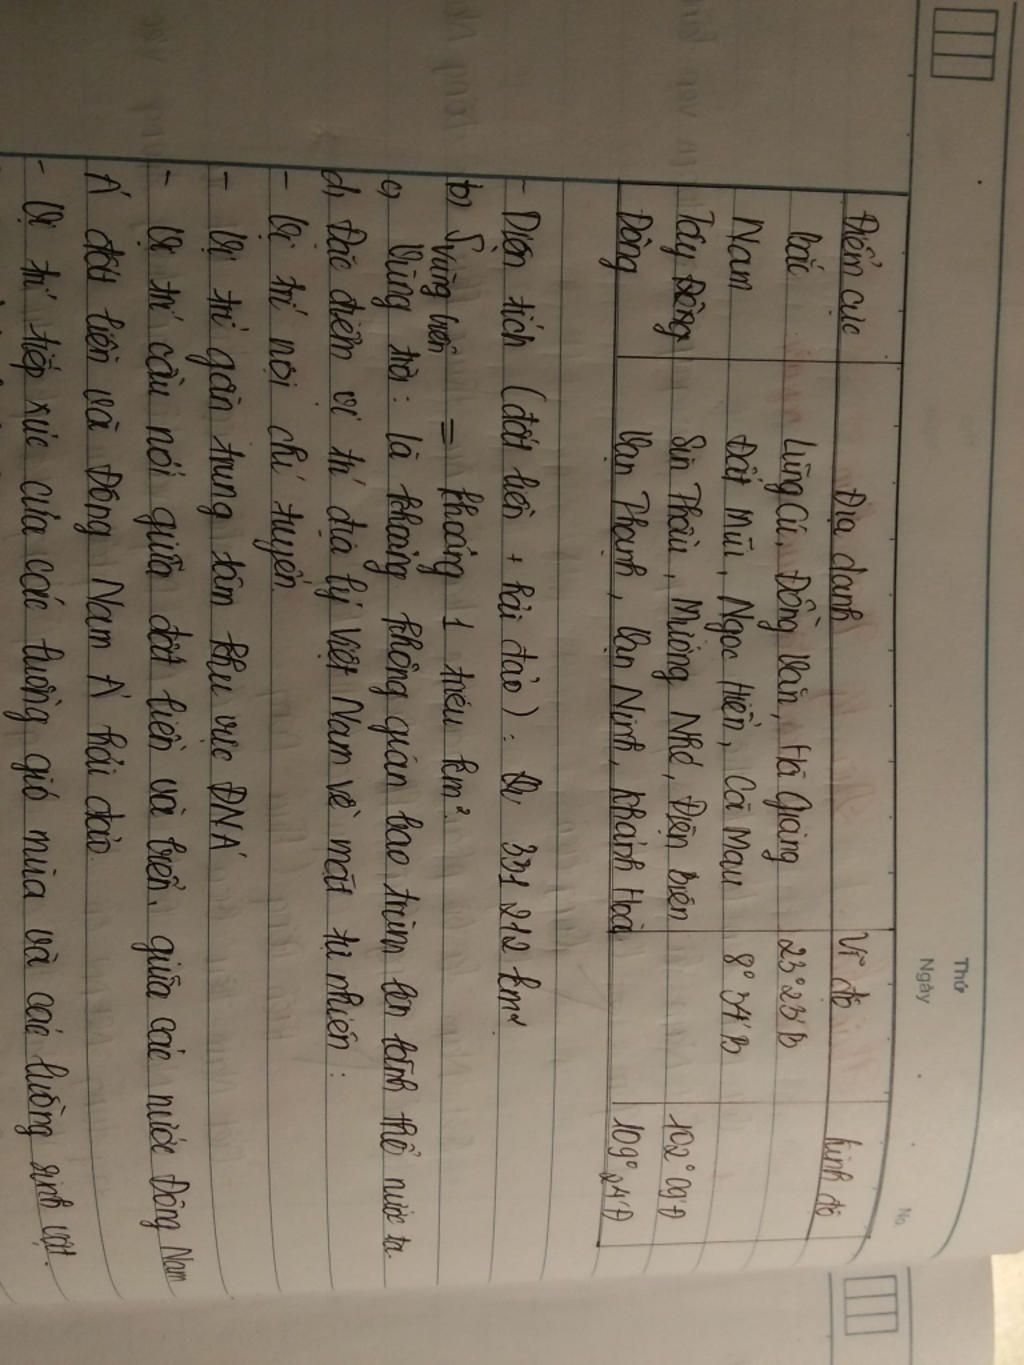 Thứ
Ngày
No.
Điểm cực Địa danh Vĩ độ kinh độ
Bắc Lũng Cú, Đồng Văn, Hà Giang 23°23'B
Nam Đất Mũi, Ngọc Hiển, Cà Mau 8°34'B
Tây Sín Thầu, Mường Nhé, Điện Biên 102°09'Đ
Đông Vạn Thạnh, Vạn Ninh, Khánh Hoà 109°24'Đ
- Diện tích (đất liền + hải đảo): 331 212 km²
b) Vùng biển = khoảng 1 triệu km².
c) Vùng trời: là khoảng không gian bao trùm lên lãnh thổ nước ta.
d) Đặc điểm vị trí địa lý Việt Nam về mặt tự nhiên:
- Vị trí nội chí tuyến.
- Vị trí gần trung tâm khu vực ĐNÁ
- Vị trí cầu nối giữa đất liền và biển, giữa các nước Đông Nam
Á đất liền và Đông Nam Á hải đảo.
- Vị trí tiếp xúc của các luồng gió mùa và các luồng sinh vật.